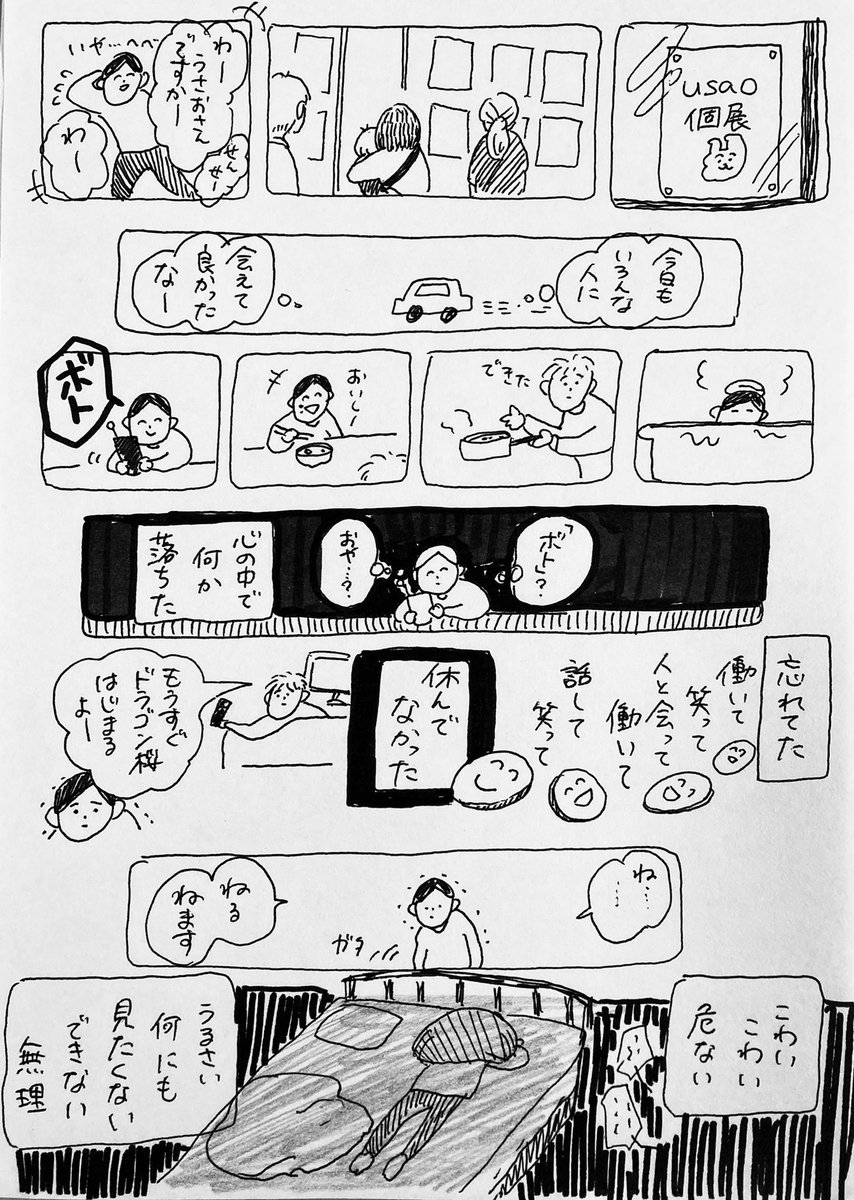 usao
個展
わー
うさおさん
ですかー
せんせー
わー
いや…へへ
今日も
いろんな
人に
会えて
良かった
なー
できた
おいしー
ボト
「ボト」?
おや…?
心の中で
何か
落ちた
忘れてた
働いて
笑って
人と会って
働いて
話して
笑って
休んで
なかった
もうすぐ
ドラゴン桜
はじまる
よー
ね…
……
ガタ
ねる
ねます
こわい
こわい
危ない
うるさい
何にも
見たくない
できない
無理